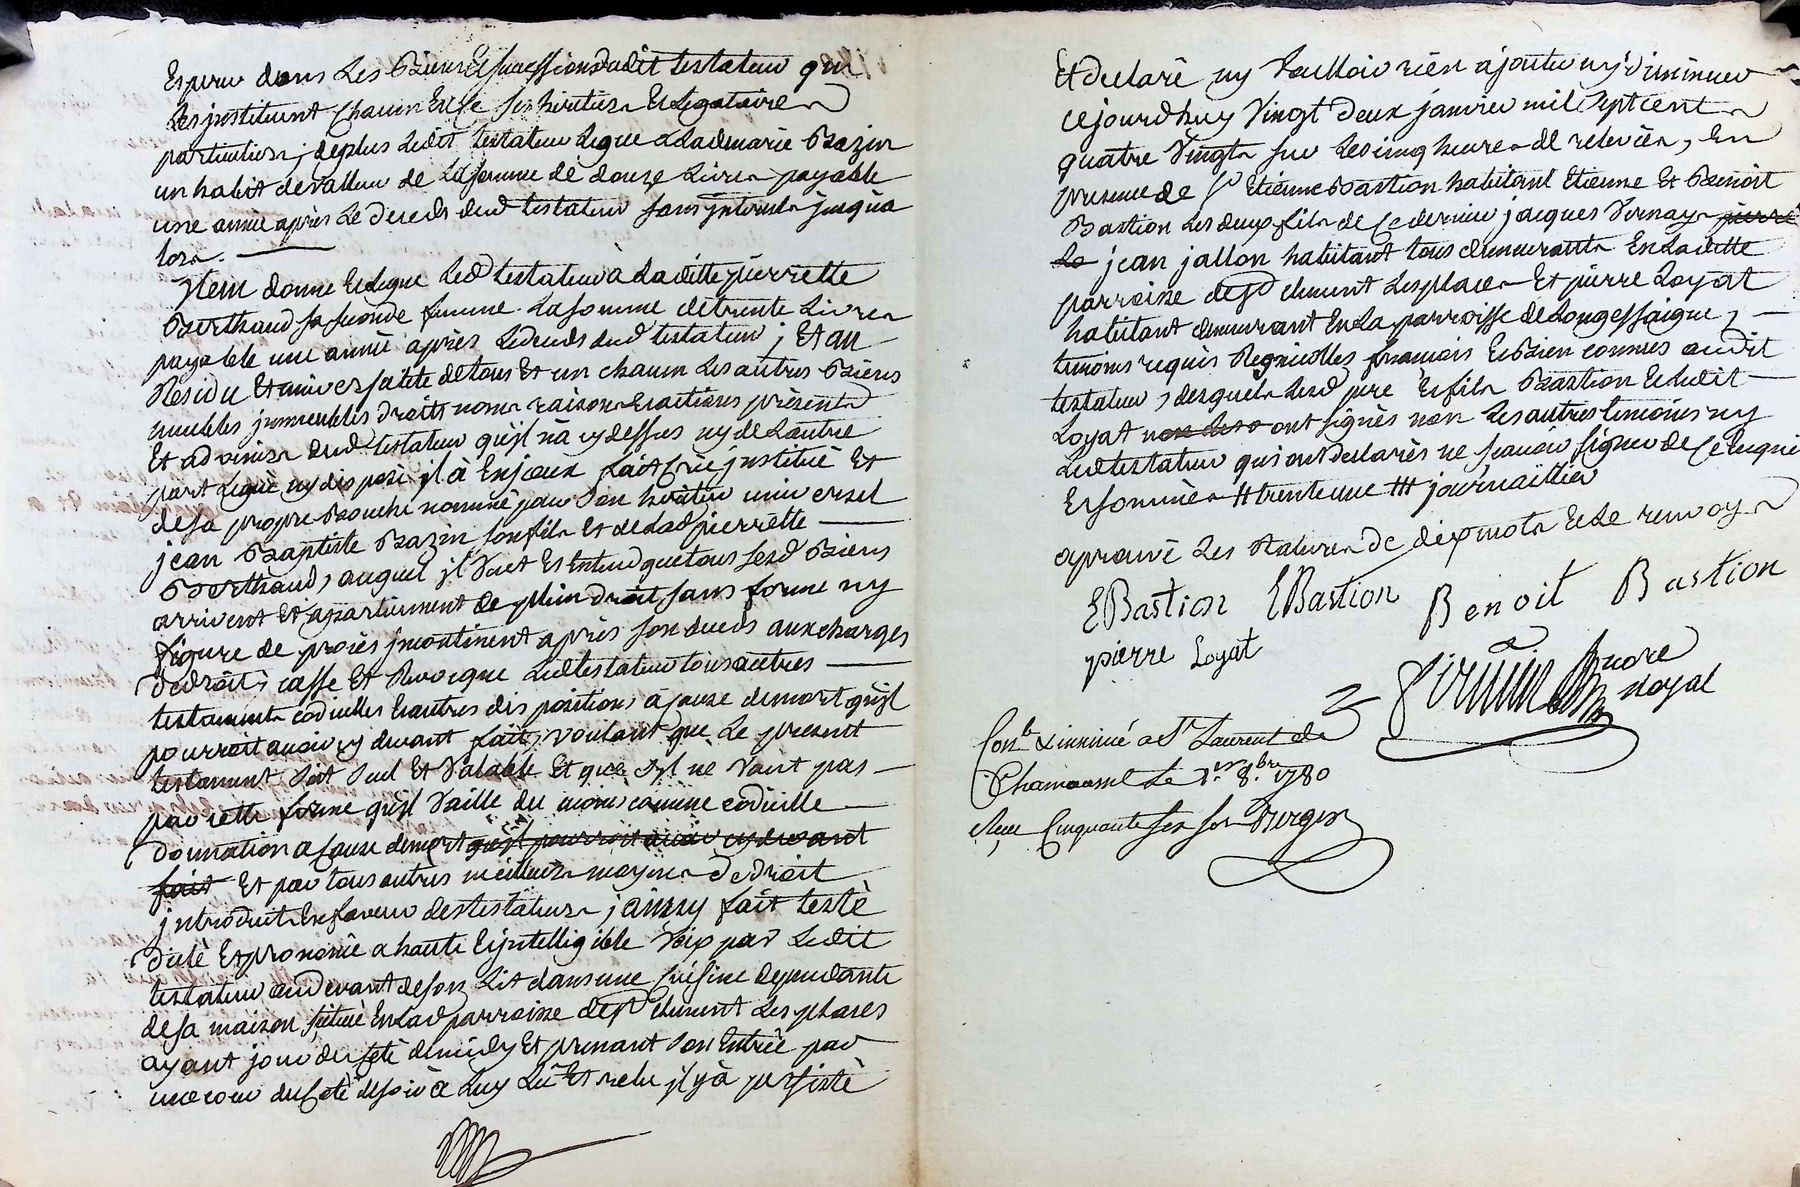 Esperer dans Les Biens Et successions dudit testateur qui
Les jnstituent Chacun En Ce ses heritiers Et Legataires
particuliers ; deplus Ledit testateur Legue a Lad marie Bazin
un habit de valleur de La somme de douze Livres payable
une année après Le deceds dud testateur sans jnterests jusqua
lors.
jtem donne Et Legue Led testateur a Laditte pierrette
Berthaud sa seconde femme La somme de trente Livres
payable une année après Le deceds dud testateur ; Et au
Residu Et universalité de tous Et un chacun Les autres Biens
meubles jmmeubles droits noms raisons Et actions présents
Et advenirs dud testateur qu'jl n'a cy dessus ny de L'autre
part Legué ny disposé jl à En jceux fait Créé jnstitué Et
de sa propre Bouche nommé pour son heritier universel
jean Baptiste Bazin son fils Et de Lad pierrette
Berthaud, auquel jl Veut Et Entend que tous sesd Biens
arrivent Et appartiennent de plein droit sans forme ny
figure de procès jncontinent après son deceds aux charges
de droit ; casse Et Revocque Led testateur tous autres
testaments codicilles Et autres dispositions à cause de mort qu'jl
pourroit avoir cy devant faits, voulant que Le present
testament soit seul Et Valable Et que s'jl ne Vaut pas
par cette forme qu'jl Vaille du moins comme codicille
donnation a cause de mort qu'jl pourroit avoir cy devant
fait Et par tous autres meilleurs moyens de droit
jntroduits En faveur des testateurs ; ainsy fait testé
dicté Et prononcé a haute Et jntelligible Voix par Ledit
testateur au devant de son Lit dans une Cuisine dependante
de sa maison, située En Lad parroisse de St Clement Les places
ayant jour du Coté de midy Et prenant son Entrée par
une cour du Coté de soir à Luy Lû Et relu jl y à persisté
Et declaré ny Vouloir rien ajouter ny diminuer
cejourdhuy Vingt deux janvier mil sept cent
quatre Vingts sur Les cinq heures de relevée, En
presence de Sr Etienne Bastion habitant Etienne Et Benoist
Bastion Les deux fils de Ce dernier jacques Vernay pierre
Lo jean jallon habitant tous demeurants En Laditte
parroisse de St Clement Les places Et pierre Loyat
habitant demeurant En La parroisse de Longessaigne,
temoins requis Regnicolles françois Et Bien connus audit
testateur, desquels Lesd pere Et fils Bastion Et Ledit
Loyat non Les ont signés non Les autres temoins ny
Led testateur qui ont declarés ne sçavoir signer de Ce Enquis
Et sommés # trente une ## journaillier
aprouvé Les Ratures de dix mots Et Le renvoy
EBastion EBastion Benoit Bastion
pierre Loyat
nore
Royal
Con.le & insinué a St Laurent de
Chamousset Le 1.er 8.bre 1780
Reçu Cinquante six sols